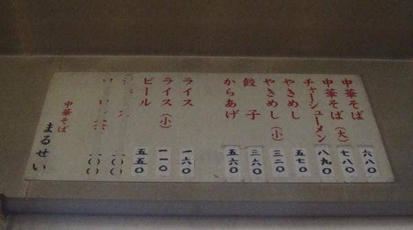 中華そば 六八〇
中華そば（大） 七八〇
チャーシューメン 八九〇
やきめし 五七〇
やきめし（小） 三二〇
餃子 三六〇
からあげ 五六〇
ライス 一六〇
ライス（小） 一一〇
ビール 五五〇
一〇〇
一〇〇
中華そば
まるせい